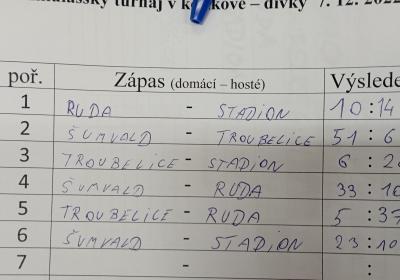 turnaj v k kové – dívky 7. 12. 2022
poř. Zápas (domácí – hosté) Výslede
1 RUDA - STADION 10:14
2 ŠUMVALD - TROUBELICE 51:6
3 TROUBELICE - STADION 6:2
4 ŠUMVALD - RUDA 33:10
5 TROUBELICE - RUDA 5:37
6 ŠUMVALD - STADION 23:10
7 - :